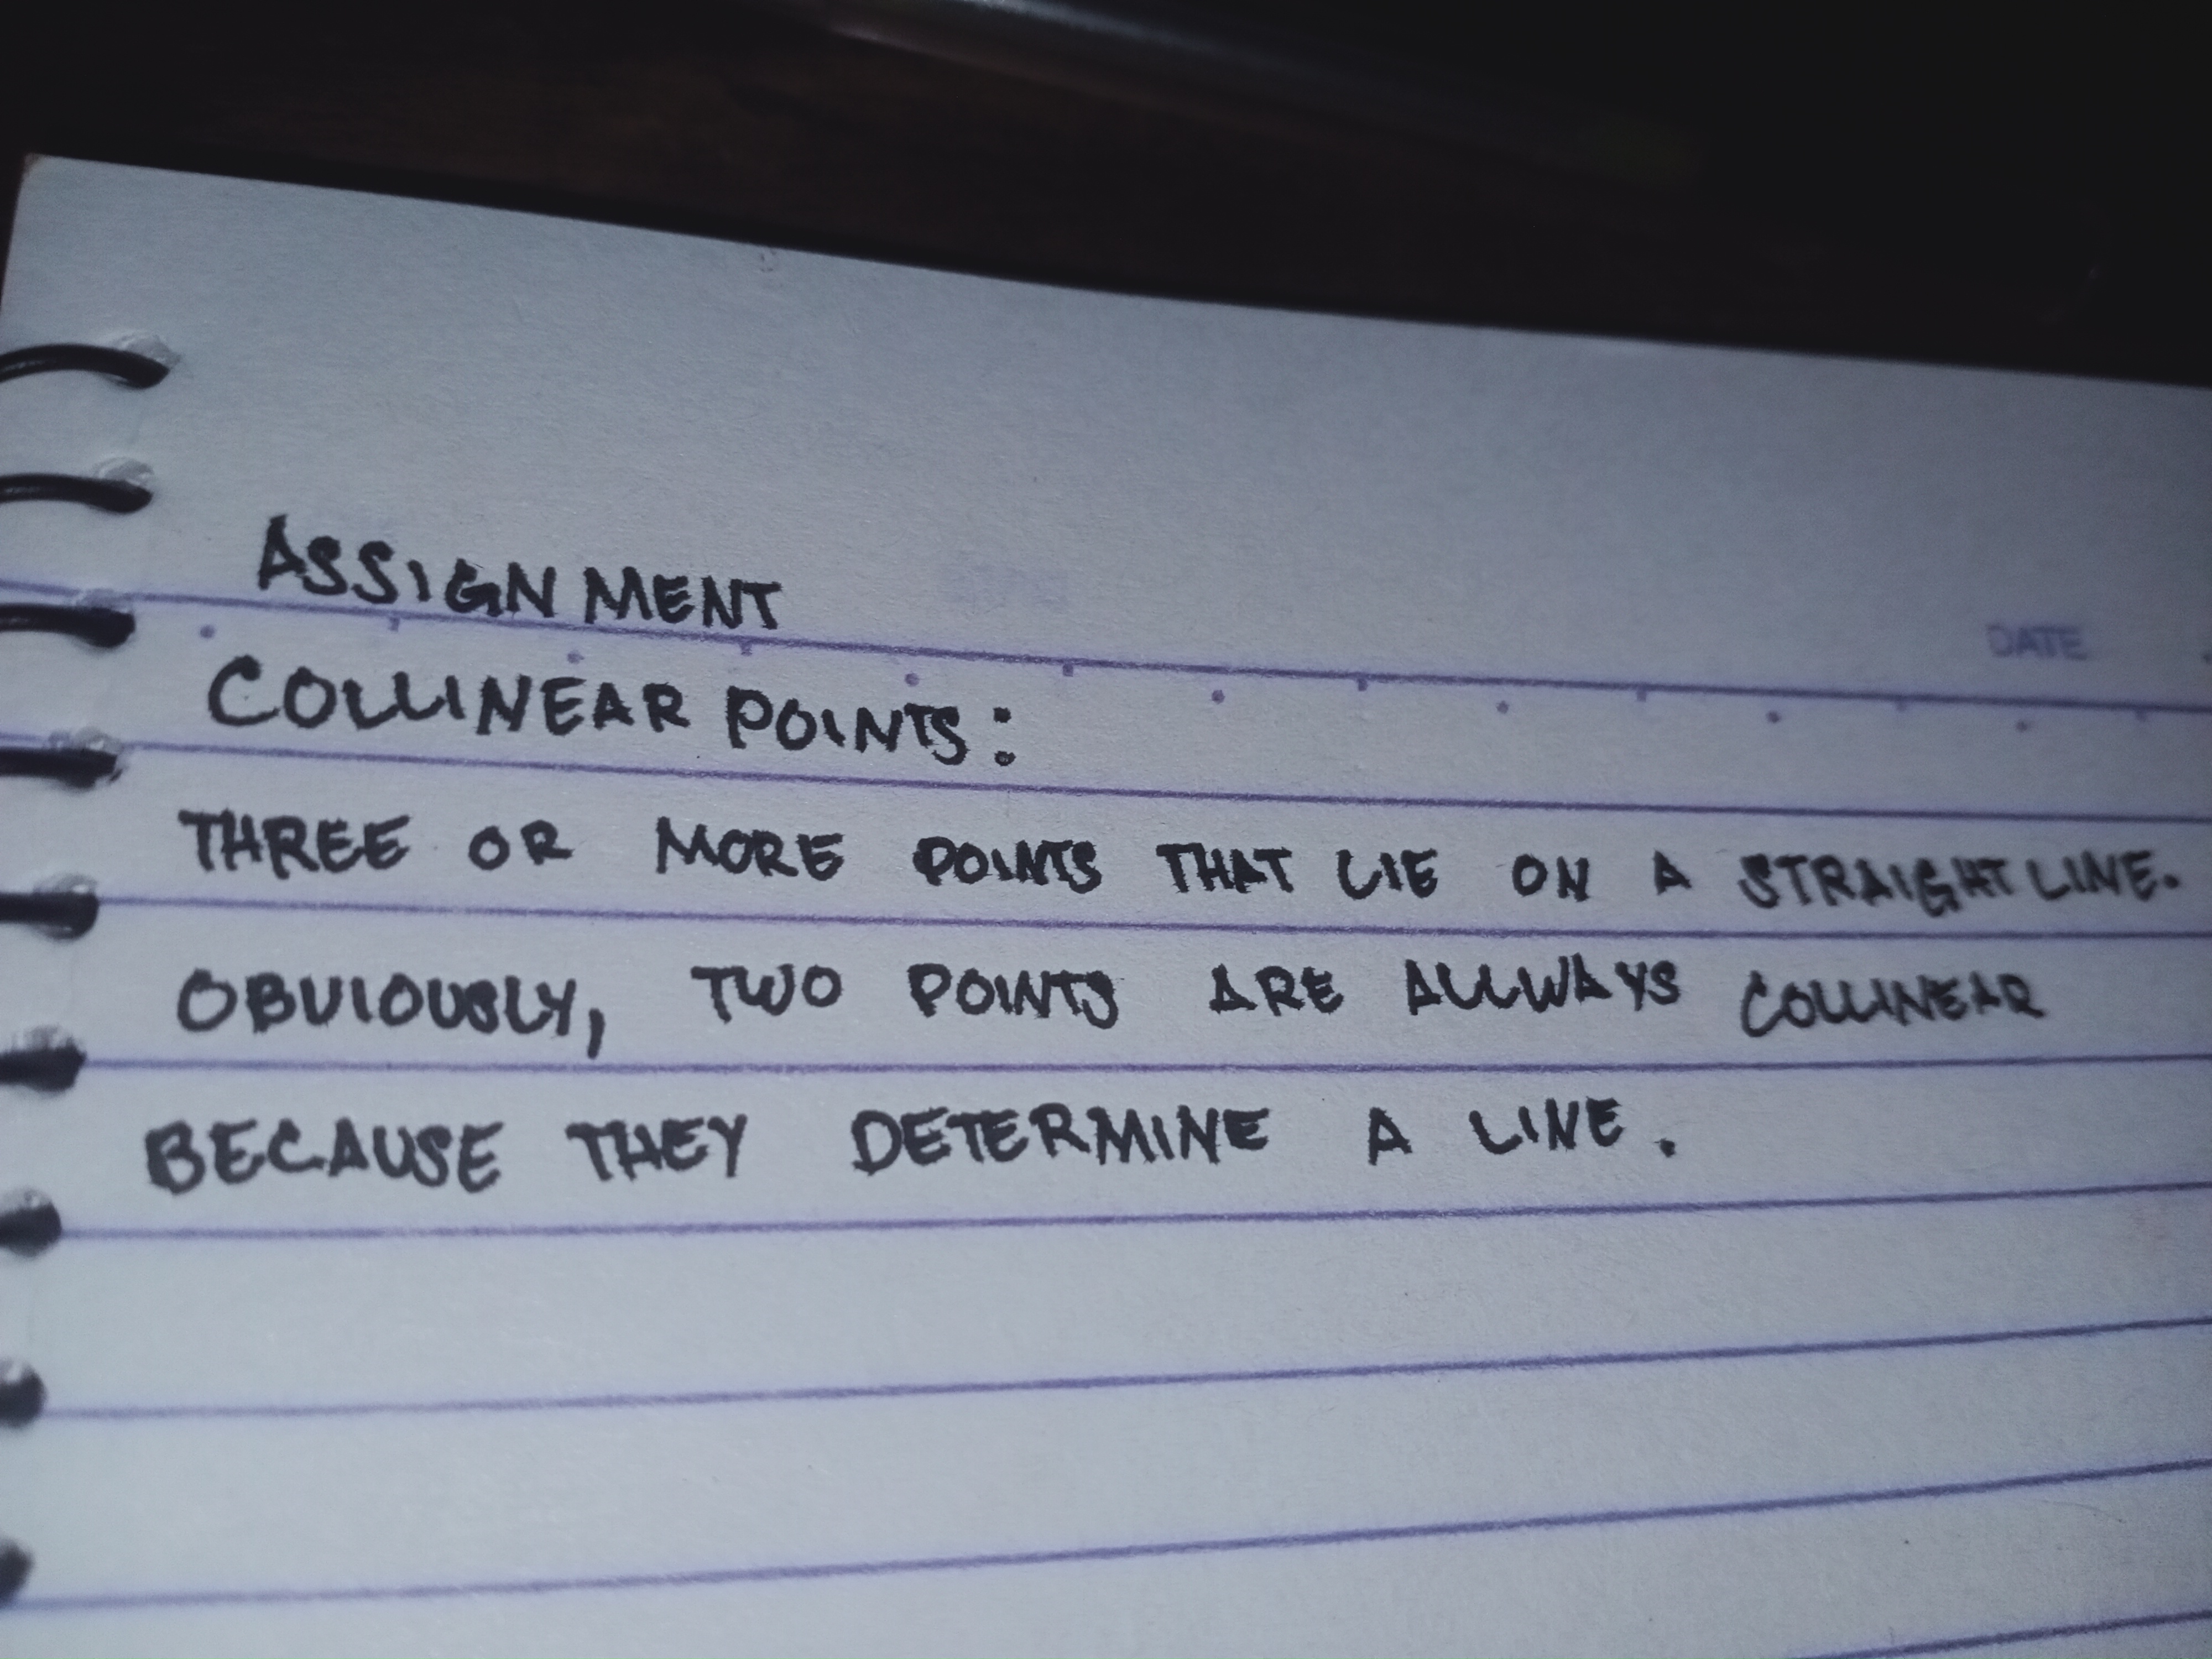 ASSIGNMENT
DATE
COLLINEAR POINTS:
THREE OR MORE POINTS THAT LIE ON A STRAIGHT LINE.
OBVIOUSLY, TWO POINTS ARE ALLWAYS COLLINEAR
BECAUSE THEY DETERMINE A LINE.